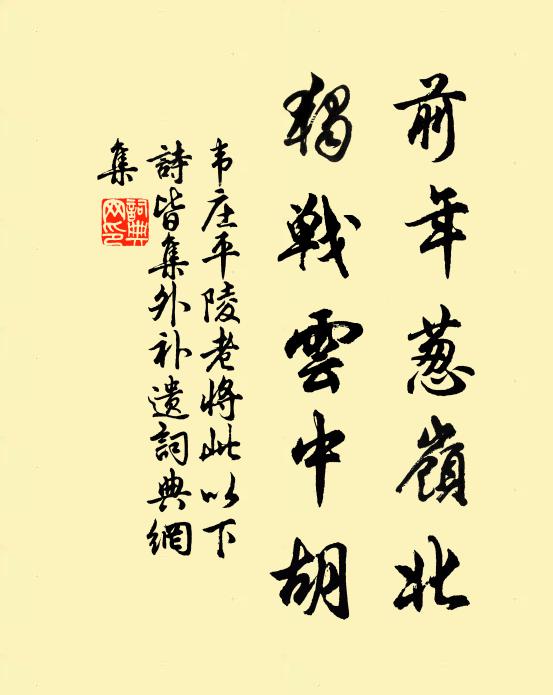 前年葱嶺北
獨戰雲中胡
韦庄平陵老將此以下
詩皆集外补遺詞典網
集
詞典网印